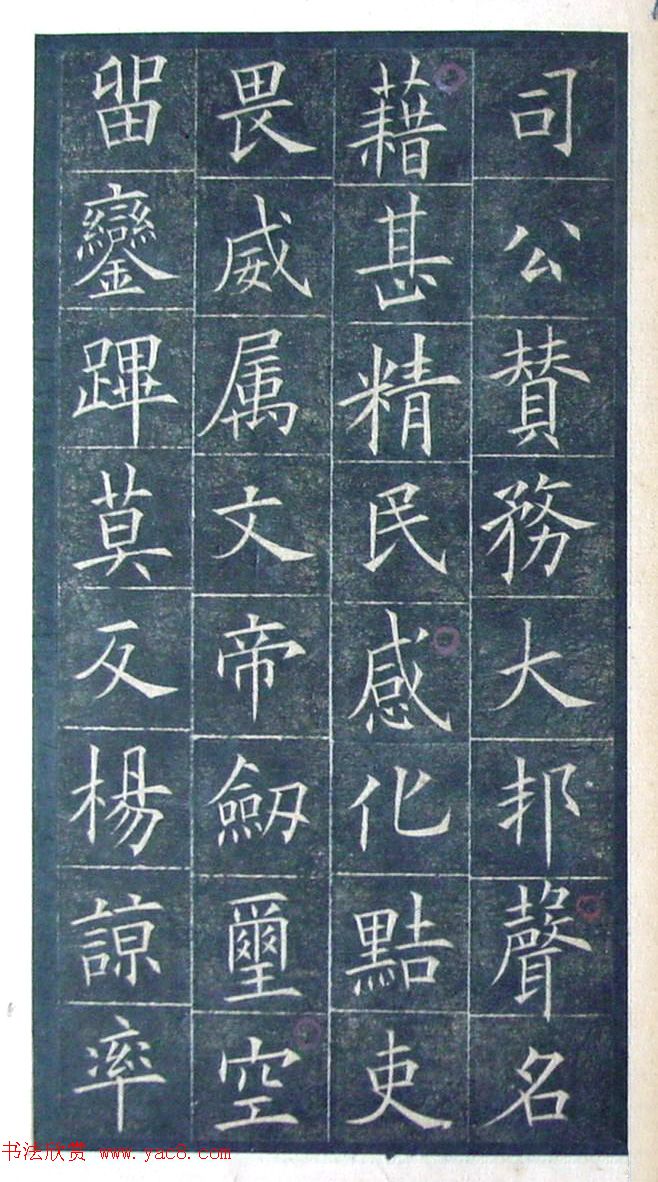 司公賛務大邦聲名
藉甚精民感化黠吏
畏威属文帝劒璽空
留鑾蹕莫反楊諒率
书法欣赏 www.yac8.com